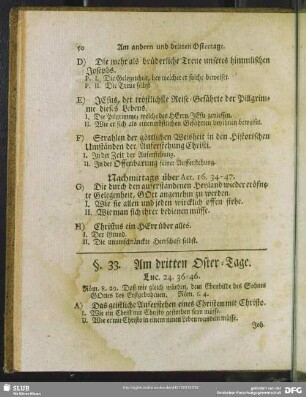 50 Am andern und dritten Ostertage.
D) Die mehr als brüderliche Treue unseres himmlischen
Josephs.
P. I. Die Gelegenheit, bey welcher er solche beweiset.
P. II. Die Treue selbst.
E) JEsus, der tröstlichste Reise-Gefährte der Pilgrim-
me dieses Lebens.
I. Die Pilgrimme, welche des HErrn JEsu geniessen.
II. Wie er sich als
F) Strahlen der göttlichen Weisheit in den Historischen
Umständen der Auferstehung Christi.
I. In der Zeit der Auferstehung.
II. In der Offenbarung seiner Auferstehung.
Nachmittags über Act. 16, 34-47.
G) Die durch den auferstandenen Heyland wieder eröfne-
te Gelegenheit, GOtt angenehm zu werden.
I. Wie sie allen und jeden wirklich offen stehe.
II. Wie man sich ihrer bedienen müsse.
H) Christus ein HErr über alles.
I. Der Grund.
II. Die unumschränckte Herrschaft selbst.
§. 33. Am dritten Oster-Tage.
Luc. 24. 36-46.
Röm. 8. 29. Daß wir gleich würden, dem Ebenbilde des Sohns
GOttes des Erstgebohrnen. Röm. 6. 4.
A) Das geistliche Auferstehen eines Christen mit Christo.
I. Wie ein Christ mit Christo gestorben seyn müsse.
II. Wie er mit Christo in einem neuen Leben wandeln müsse.
Joh.
SLUB
Wir führen Wissen.